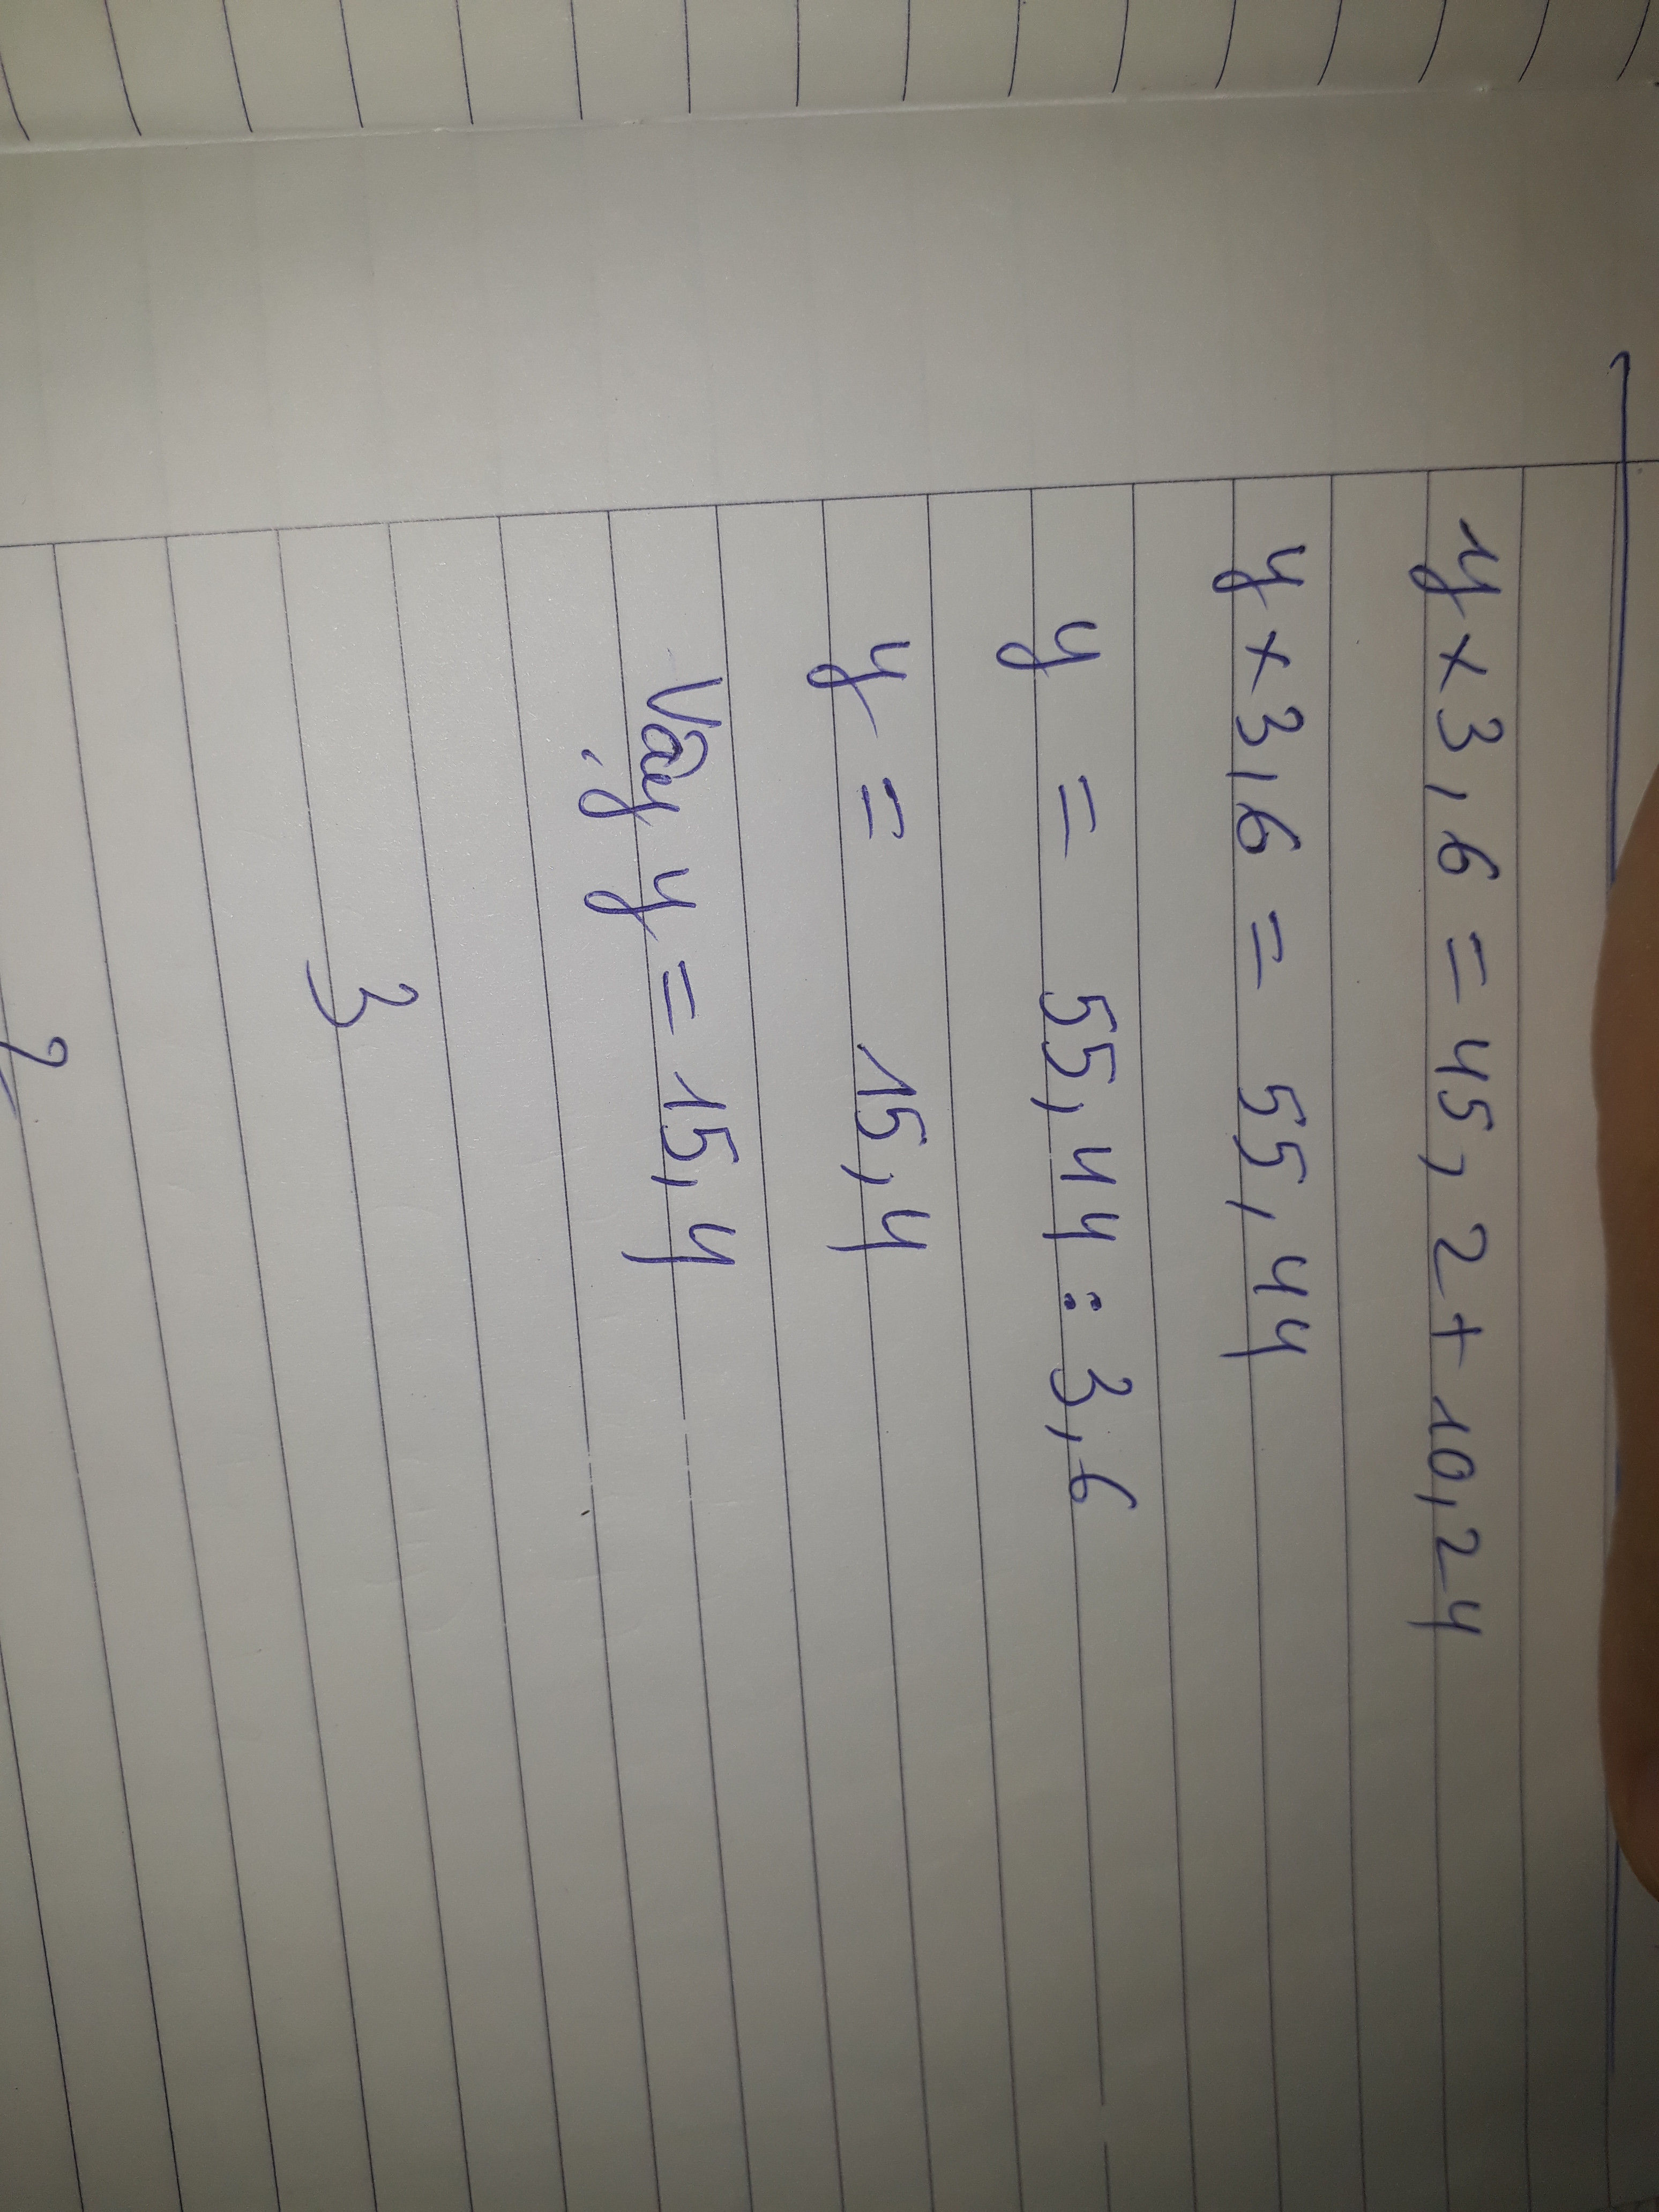 y × 3,6 = 45,2 + 10,24
y × 3,6 = 55,44
y = 55,44 : 3,6
y = 15,4
Vậy y = 15,4
3